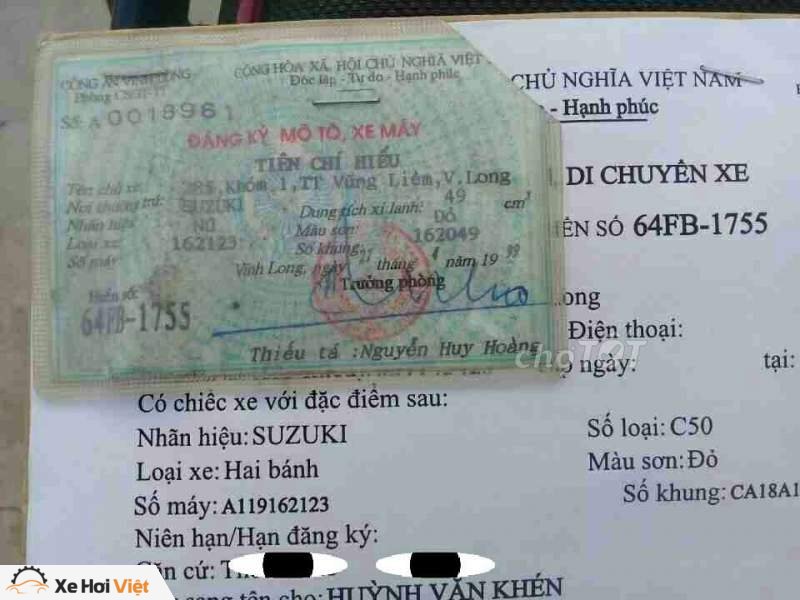 CÔNG AN VĨNH LONG
CỘNG HÒA XÃ HỘI CHỦ NGHĨA VIỆT
Phòng CSGT-TT
Độc lập - Tự do - Hạnh phúc
Số A 0018961
ĐĂNG KÝ MÔ TÔ, XE MÁY
TIÊN CHÍ HIẾU
Tên chủ xe: 285, Khóm 1, TT Vũng Liêm, V.Long
Nơi thường trú: SUZUKI Dung tích xi lanh: 49 cm³
Nhãn hiệu: NỮ Màu sơn: ĐỎ
Loại xe: 162123 Số khung: 162049
Số máy:
Vĩnh Long, ngày 21 tháng 4 năm 19 99
Trưởng phòng
Biển số:
64FB-1755
Thiếu tá : Nguyễn Huy Hoàng
CHỦ NGHĨA VIỆT NAM
- Hạnh phúc
DI CHUYỂN XE
ỂN SỐ 64FB-1755
ong
Điện thoại:
ngày: tại:
chợTỐT
Có chiếc xe với đặc điểm sau:
Nhãn hiệu: SUZUKI Số loại: C50
Loại xe: Hai bánh Màu sơn: Đỏ
Số máy: A119162123 Số khung: CA18A1
Niên hạn/Hạn đăng ký:
Căn cứ:
sang tên cho: HUỲNH VĂN KHÉN
Xe Hơi Việt